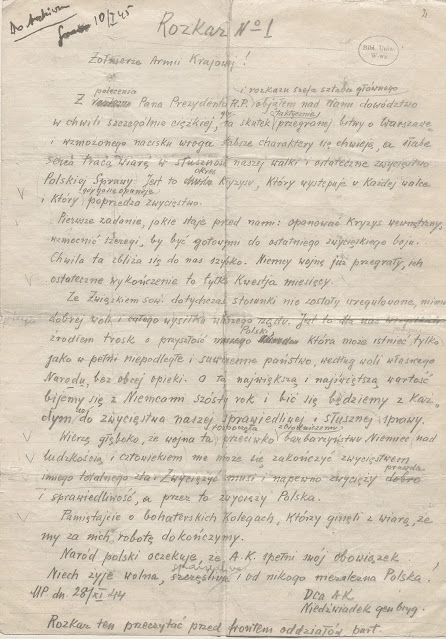 Do archiwum
10/I 45
Rozkaz No 1
2.
Bibl. Uniw.
W-wa
Żołnierze Armii Krajowej!
polecenia i rozkazu szefa sztabu głównego
Z Pana Prezydenta R.P. objąłem nad Wami dowództwo
w chwili szczególnie ciężkiej, gdy na skutek taktycznie przegranej bitwy o Warszawę
i wzmożonego nacisku wroga słabsze charaktery się chwieją, a słabe
serca tracą wiarę w słuszność naszej walki i ostateczne zwycięstwo
Polskiej Sprawy. Jest to chwila okres kryzysu, który występuje w każdej walce
i który gdy go się opanuje poprzedza zwycięstwo.
Pierwsze zadanie, jakie staje przed nami: opanować kryzys wewnętrzny,
wzmocnić szeregi, by być gotowymi do ostatniego zwycięskiego boju.
Chwila ta zbliża się do nas szybko. Niemcy wojnę już przegrały, ich
ostateczne wykończenie to tylko kwestja miesięcy.
Ze Związkiem sow. dotychczas stosunki nie zostały uregulowane, mimo
dobrej woli i całego wysiłku naszego rządu. Jest to dla nas
źródłem trosk o przyszłość Polski która może istnieć tylko
jako w pełni niepodległe i suwerenne państwo, według woli własnego
Narodu, bez obcej opieki. O tą największą i najświętszą wartość
bijemy się z Niemcami szósty rok i bić się będziemy z każdym
do zwycięstwa naszej sprawiedliwej i słusznej sprawy.
Wierzę głęboko, że wojna ta rozpoczęta przeciwko zbrodniczemu barbarzyństwu Niemiec nad
ludzkością i człowiekiem nie może się zakończyć zwycięstwem
innego totalnego zła. Zwyciężyć musi i napewno zwycięży dobro prawda
i sprawiedliwość, a przez to zwycięży Polska.
Pamiętajcie o bohaterskich Kolegach, którzy ginęli z wiarą, że
my za nich robotę dokończymy.
Naród polski oczekuje, że A.K. spełni swój obowiązek
Niech żyje wolna, szczęśliwa sprawiedliwa i od nikogo niezależna Polska!
MP dn. 28/XI 44
Dca A.K.
Niedźwiadek gen bryg.
Rozkaz ten przeczytać przed frontem oddziałów part.